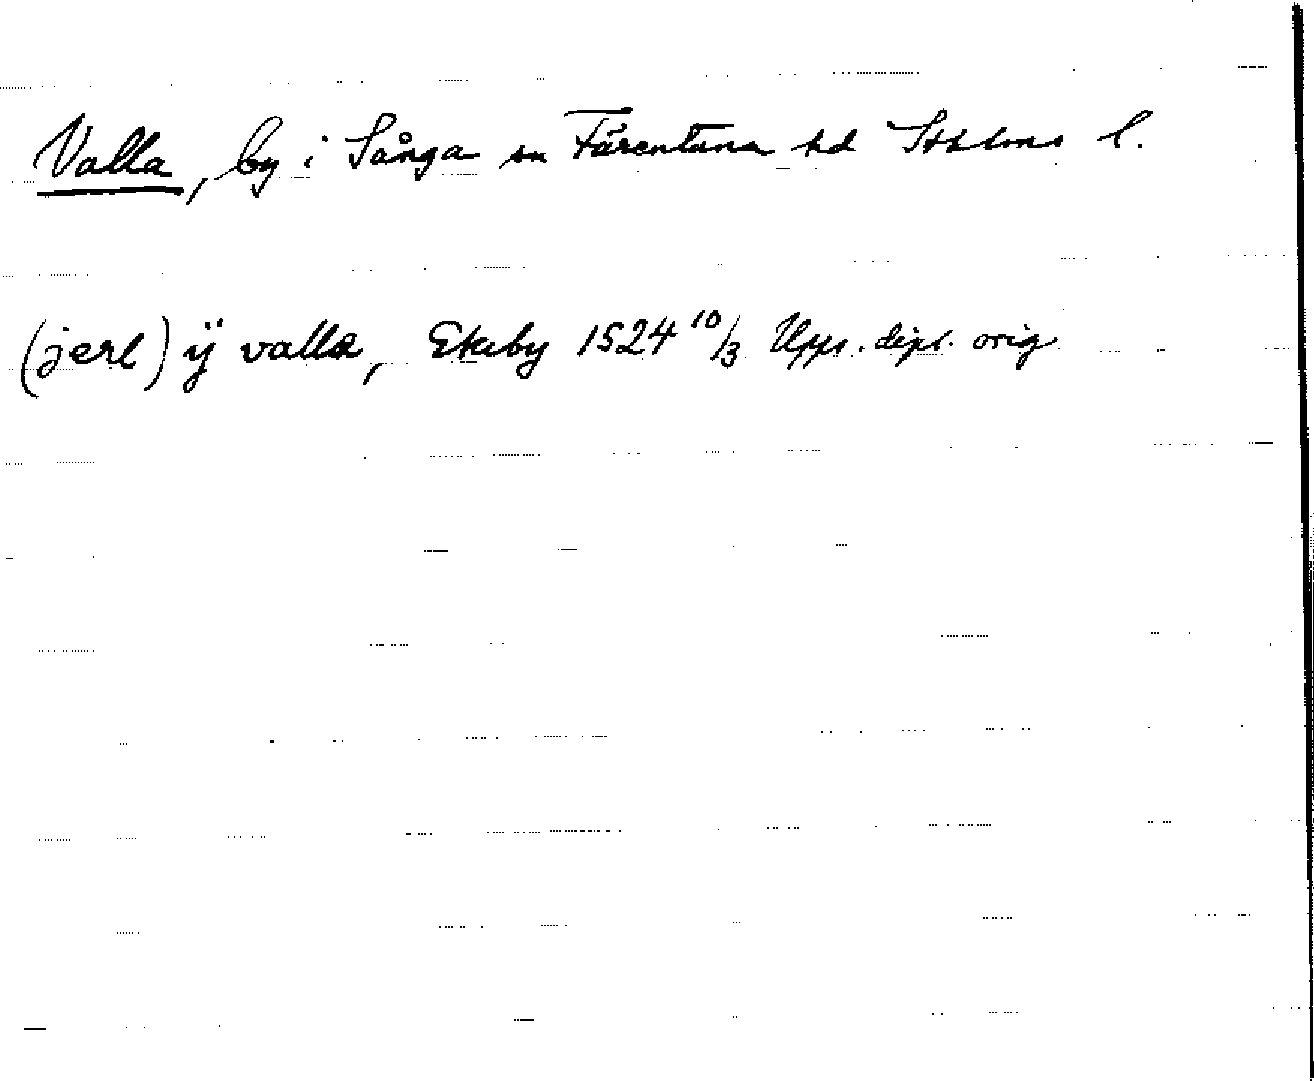 Valla, by i Sånga sn Färentuna hd Sthlms l.
(jerl) ÿ valla, Ekeby 1524 10/3 Upps. dipl. orig